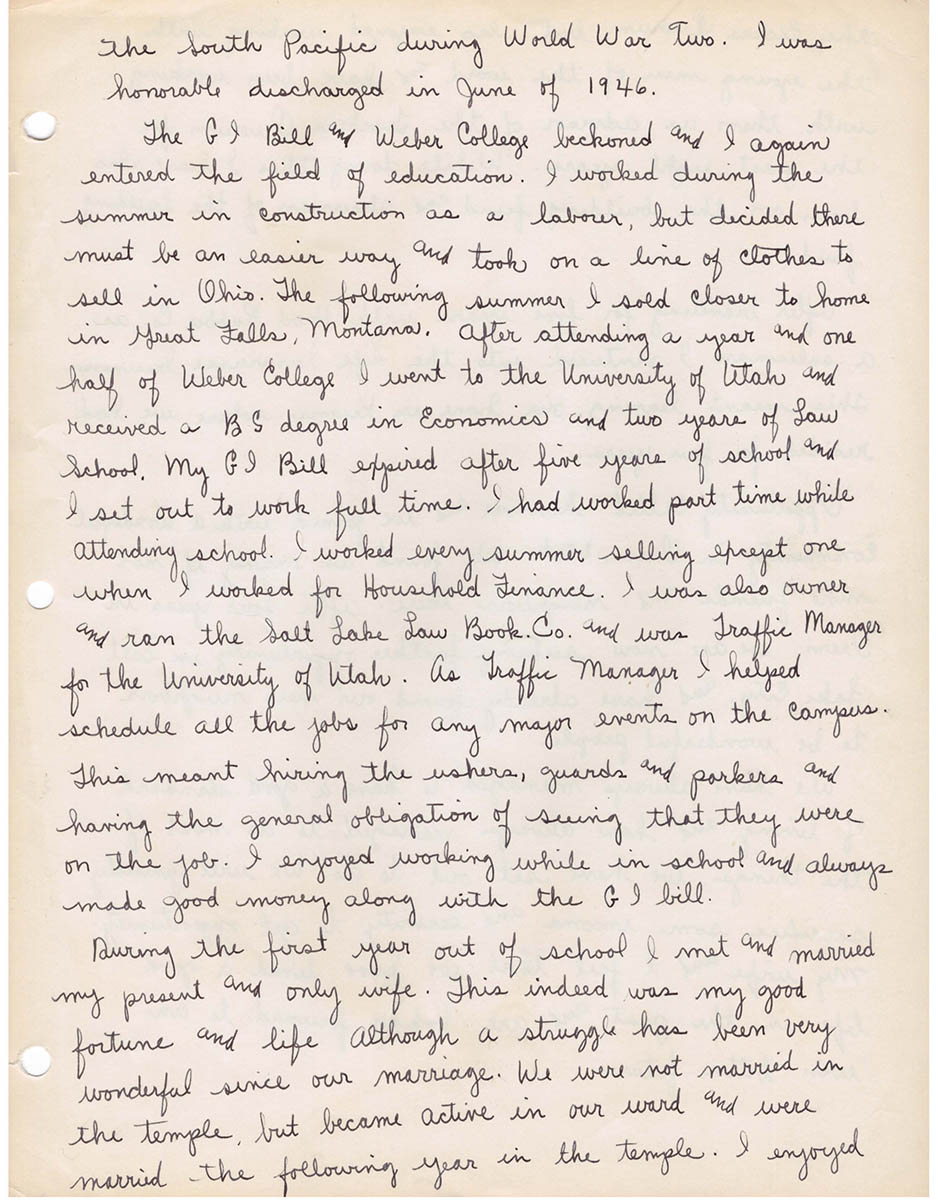 The South Pacific during World War Two. I was
honorable discharged in June of 1946.
The G I Bill and Weber College beckoned and I again
entered the field of education. I worked during the
summer in construction as a laborer, but decided there
must be an easier way and took on a line of clothes to
sell in Ohio. The following summer I sold closer to home
in Great Falls, Montana. After attending a year and one
half of Weber College I went to the University of Utah and
received a B S degree in Economics and two years of Law
School. My G I Bill expired after five years of school and
I set out to work full time. I had worked part time while
attending school. I worked every summer selling except one
when I worked for Household Finance. I was also owner
and ran the Salt Lake Law Book. Co. and was Traffic Manager
for the University of Utah. As Traffic Manager I helped
schedule all the jobs for any major events on the campus.
This meant hiring the ushers, guards and parkers and
having the general obligation of seeing that they were
on the job. I enjoyed working while in school and always
made good money along with the G I bill.
During the first year out of school I met and married
my present and only wife. This indeed was my good
fortune and life Although a struggle has been very
wonderful since our marriage. We were not married in
the temple, but became active in our ward and were
married the following year in the temple. I enjoyed